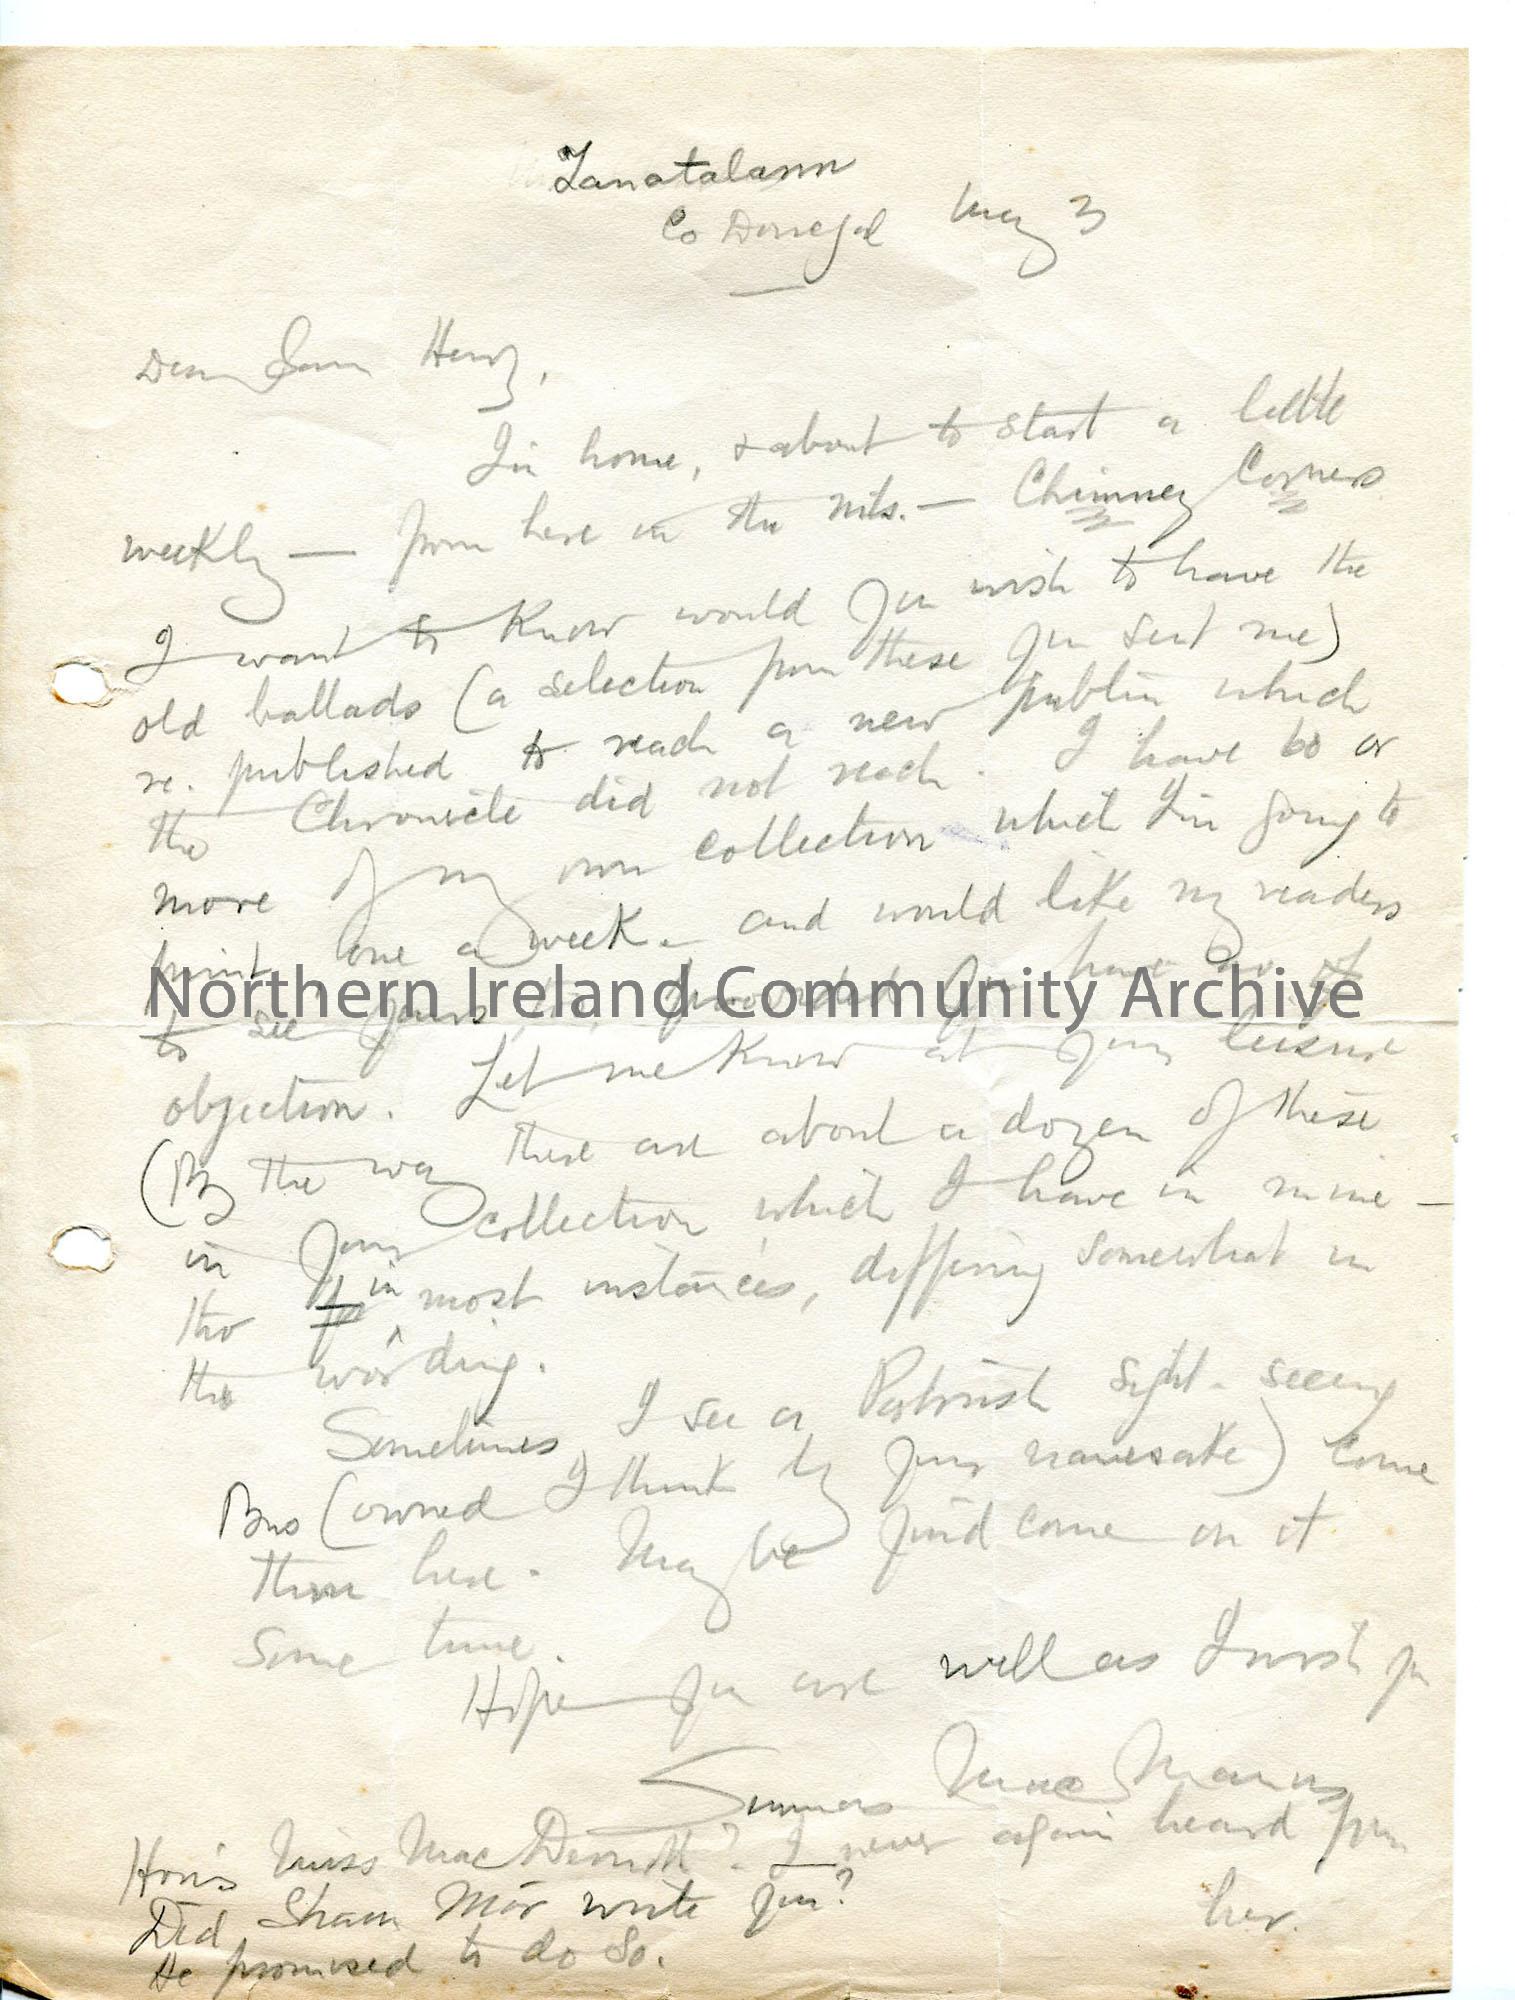 Co Donegal May 3
Dear Sam Henry,
I'm home, & about to start a little
weekly — from here in the mts. — Chimney Corners
I want to know would you wish to have the
old ballads (a selection from these you sent me)
re.published to reach a new public which
the Chronicle did not reach. I have 60 or
more of my own collection which I'm going to
print, one a week — and would like my readers
to see yours, too, provided you have no
objection. Let me know at your leisure
(By the way there are about a dozen of these
in your collection which I have in mine —
tho in most instances, differing somewhat in
the wording.
Sometimes I see a Portrush sight-seeing
Bus (owned I think by your namesake) come
thro here. May be you'd come on it
some time.
Hope you are well as I wish you
Seumas MacManus
How's Miss MacDermott? I never again heard from
her.
Did Shaun Mór write you?
He promised to do so.
Northern Ireland Community Archive